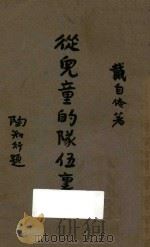 戴自俺著
從兒童的隊伍裏
陶知行題